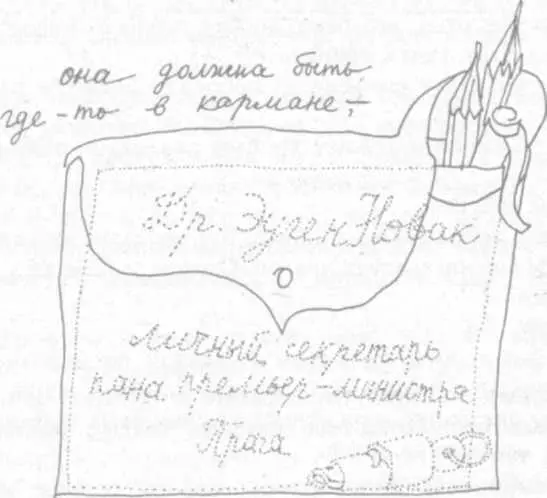 она должна быть
где-то в кармане;
Др. Эуген Новак
Личный секретарь
пана премьер-министра
Прага